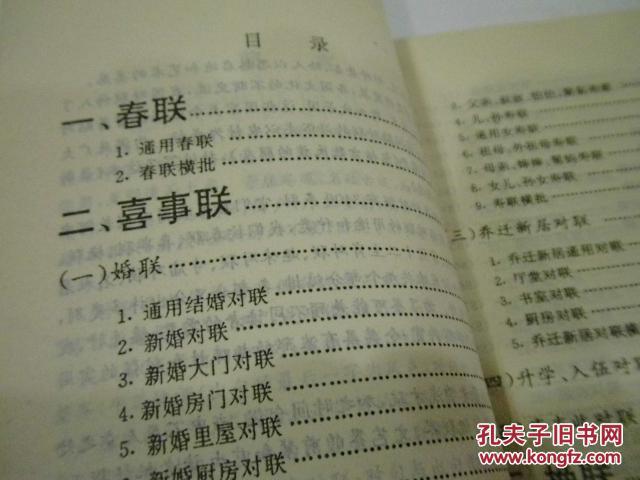 目 录
一、春联
1. 通用春联
2. 春联横批
二、喜事联
(一)婚联
1. 通用结婚对联
2. 新婚对联
3. 新婚大门对联
4. 新婚房门对联
5. 新婚里屋对联
新婚厨房对联
4. 儿、孙寿联
5. 通用女寿联
6. 祖母、外祖母寿联
8. 女儿、孙女寿联
9. 寿联横批
三)乔迁新居对联
1. 乔迁新居通用对联
2. 厅堂对联
3. 书室对联
4. 厨房对联
5. 乔迁新居对联横
四)升学、入伍对联
孔夫子旧书网
www.kongfz.com